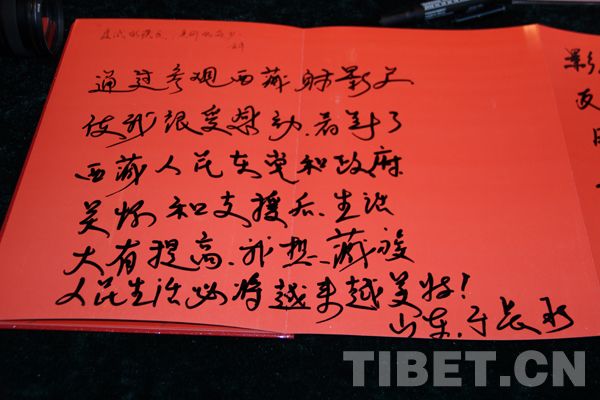 通过参观西藏影
使我很受感动.看到了
西藏人民在党和政府
关怀和支援后.生活
大有提高.我想.藏族
人民生活必将越来越美好!
山东.于长
影
友
TIBET.CN